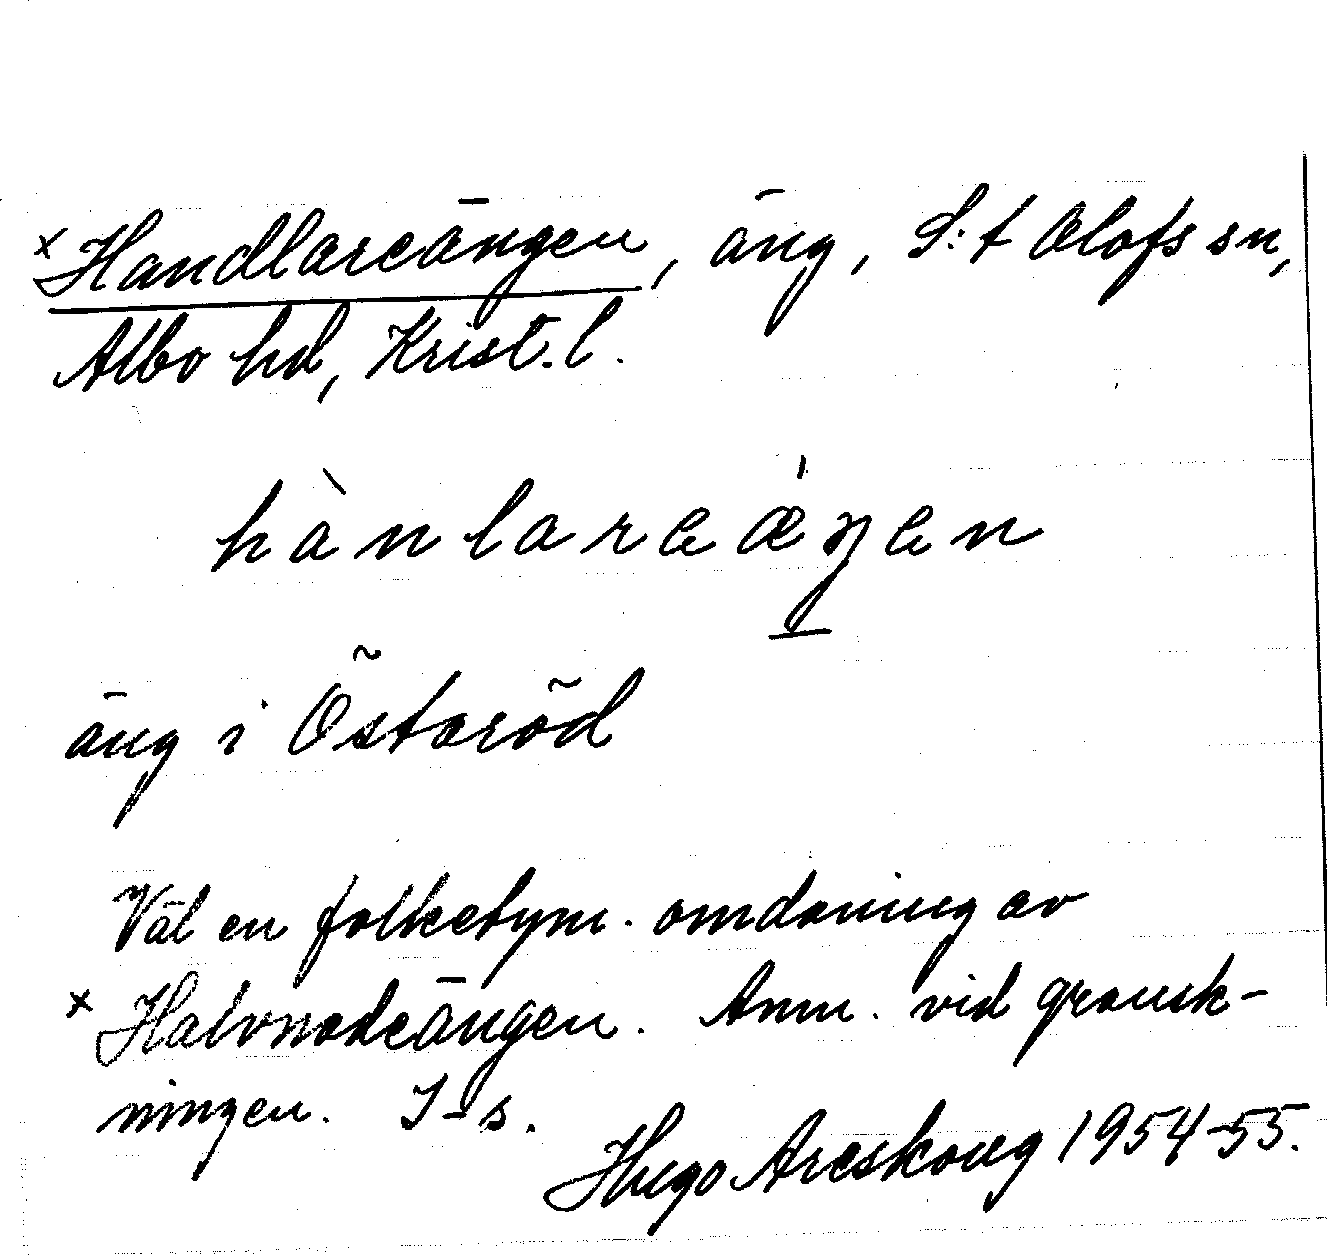 ×Handlareängen, äng, S:t Olofs sn,
Albo hd, Krist. l.
hànlareǽŋen
äng i Östaröd
Väl en folketym. omdaning av
×Halvnadeängen. Anm. vid gransk-
ningen. I-s.
Hugo Areskoug 1954-55.